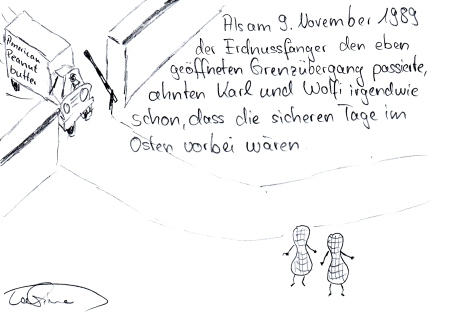 American
Peanut
butter
Als am 9. November 1989
der Erdnussfänger den eben
geöffneten Grenzübergang passierte,
ahnten Karl und Wolfi irgendwie
schon, dass die sicheren Tage im
Osten vorbei wären